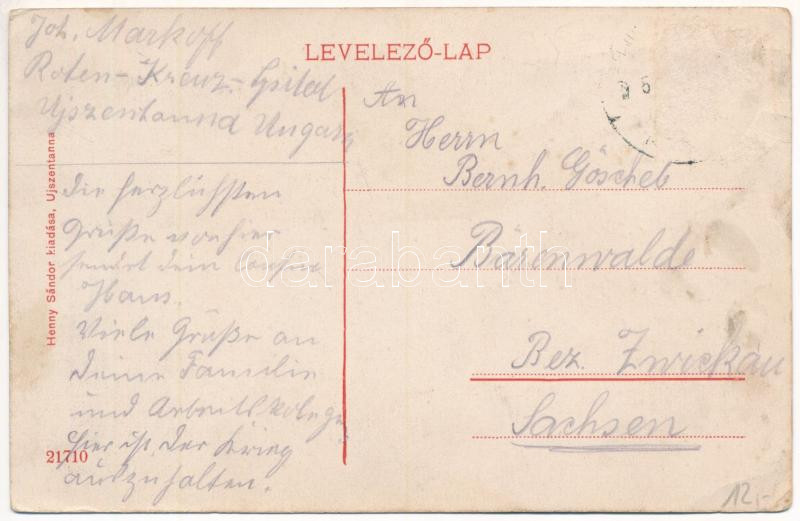 Joh. Markoff
Roten-Kreuz-
Ujszentanna Ungarn
LEVELEZŐ-LAP
An
Herrn
Bernh. Göscheb
Bärenwalde
Bez. Zwickau
Sachsen
die herzlichsten
Grüße von hier
sendet dein
Hans.
Viele Grüße an
deine Familie
und
hier ist der Krieg
auszuhalten.
Henny Sándor kiadása, Ujszentanna
21710
darabanth
12,-